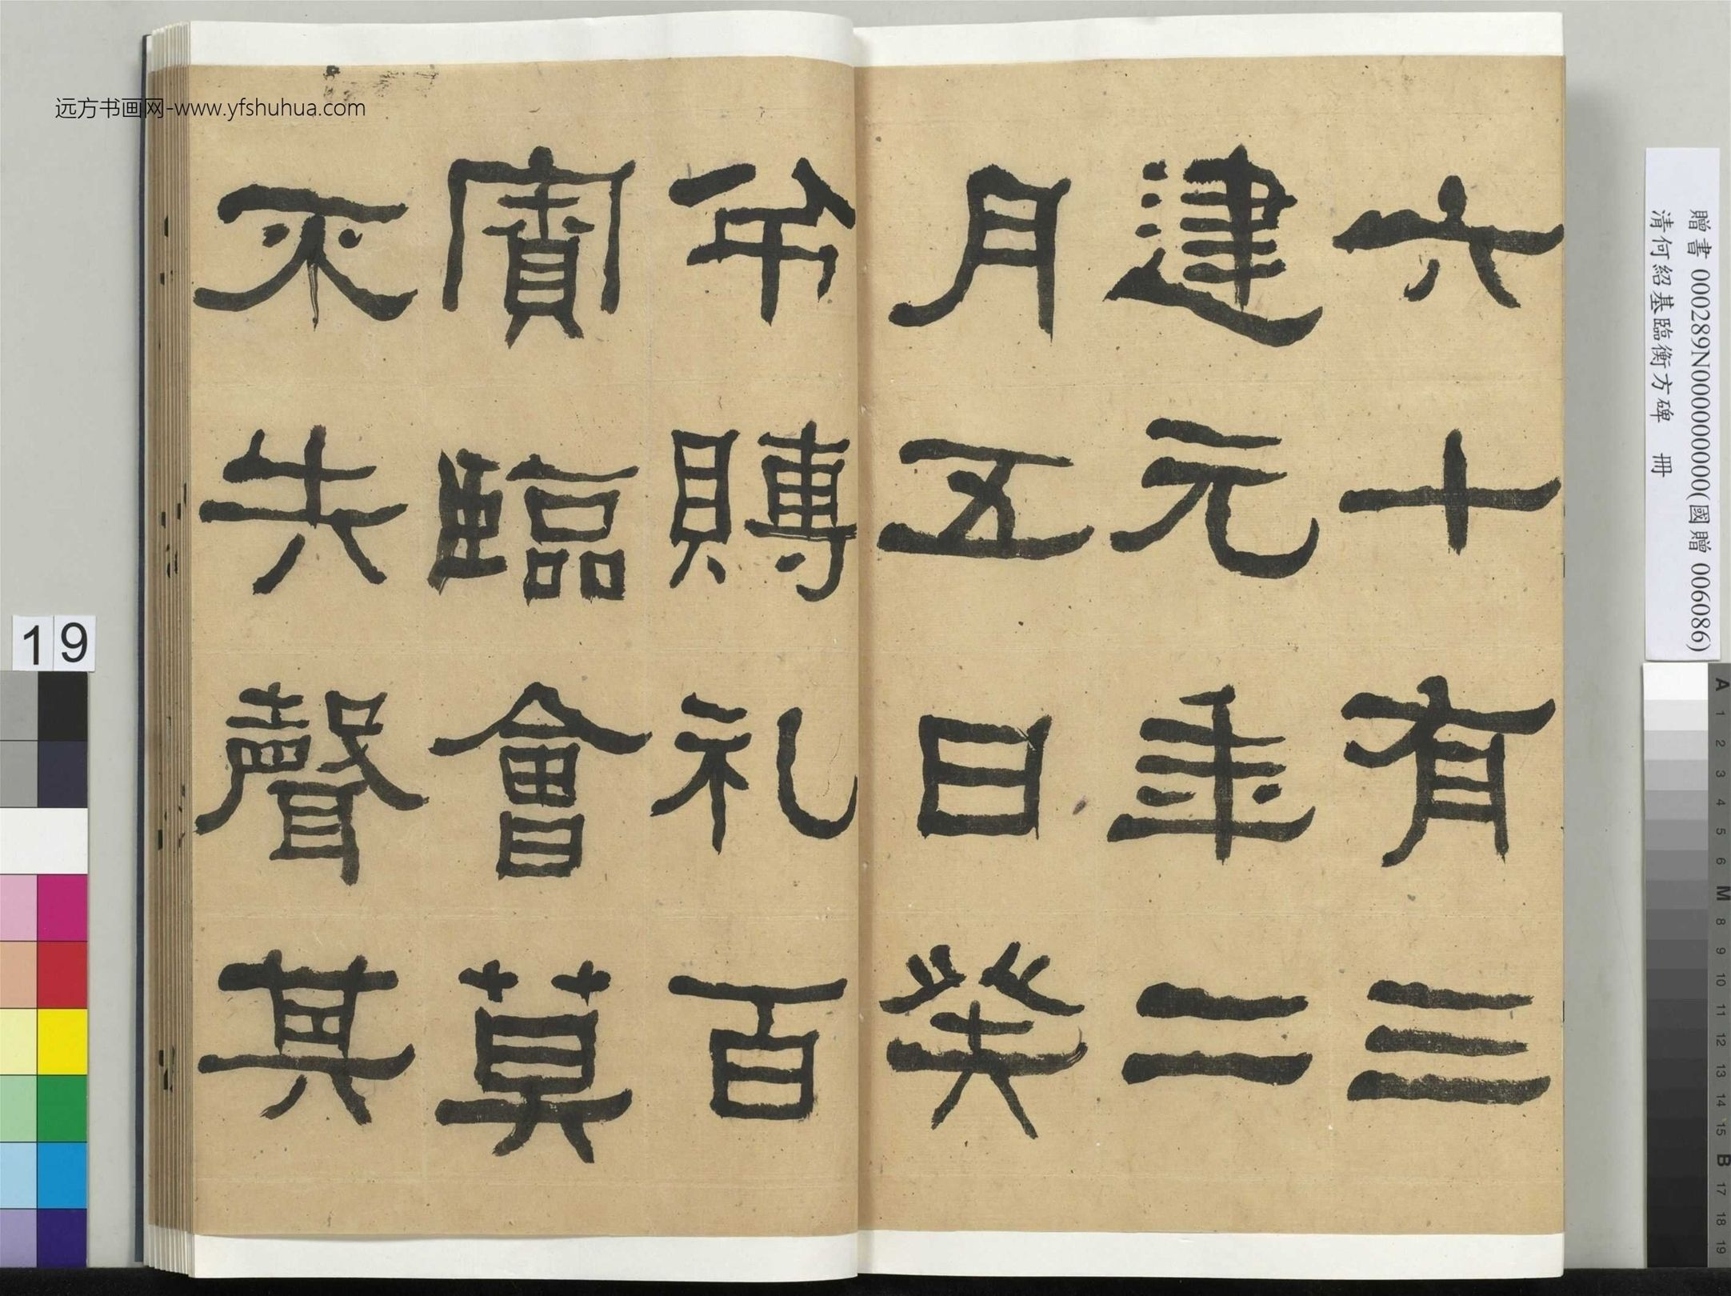 六十有三
建元年二
月五日癸
賻礼百
賓臨會莫
不失聲其
远方书画网-www.yfshuhua.com
19
贈書 000289N000000000(國贈 006086)
清何紹基臨衡方碑 冊
A 1 2 3 4 5 6 M 8 9 10 11 12 13 14 15 B 17 18 19